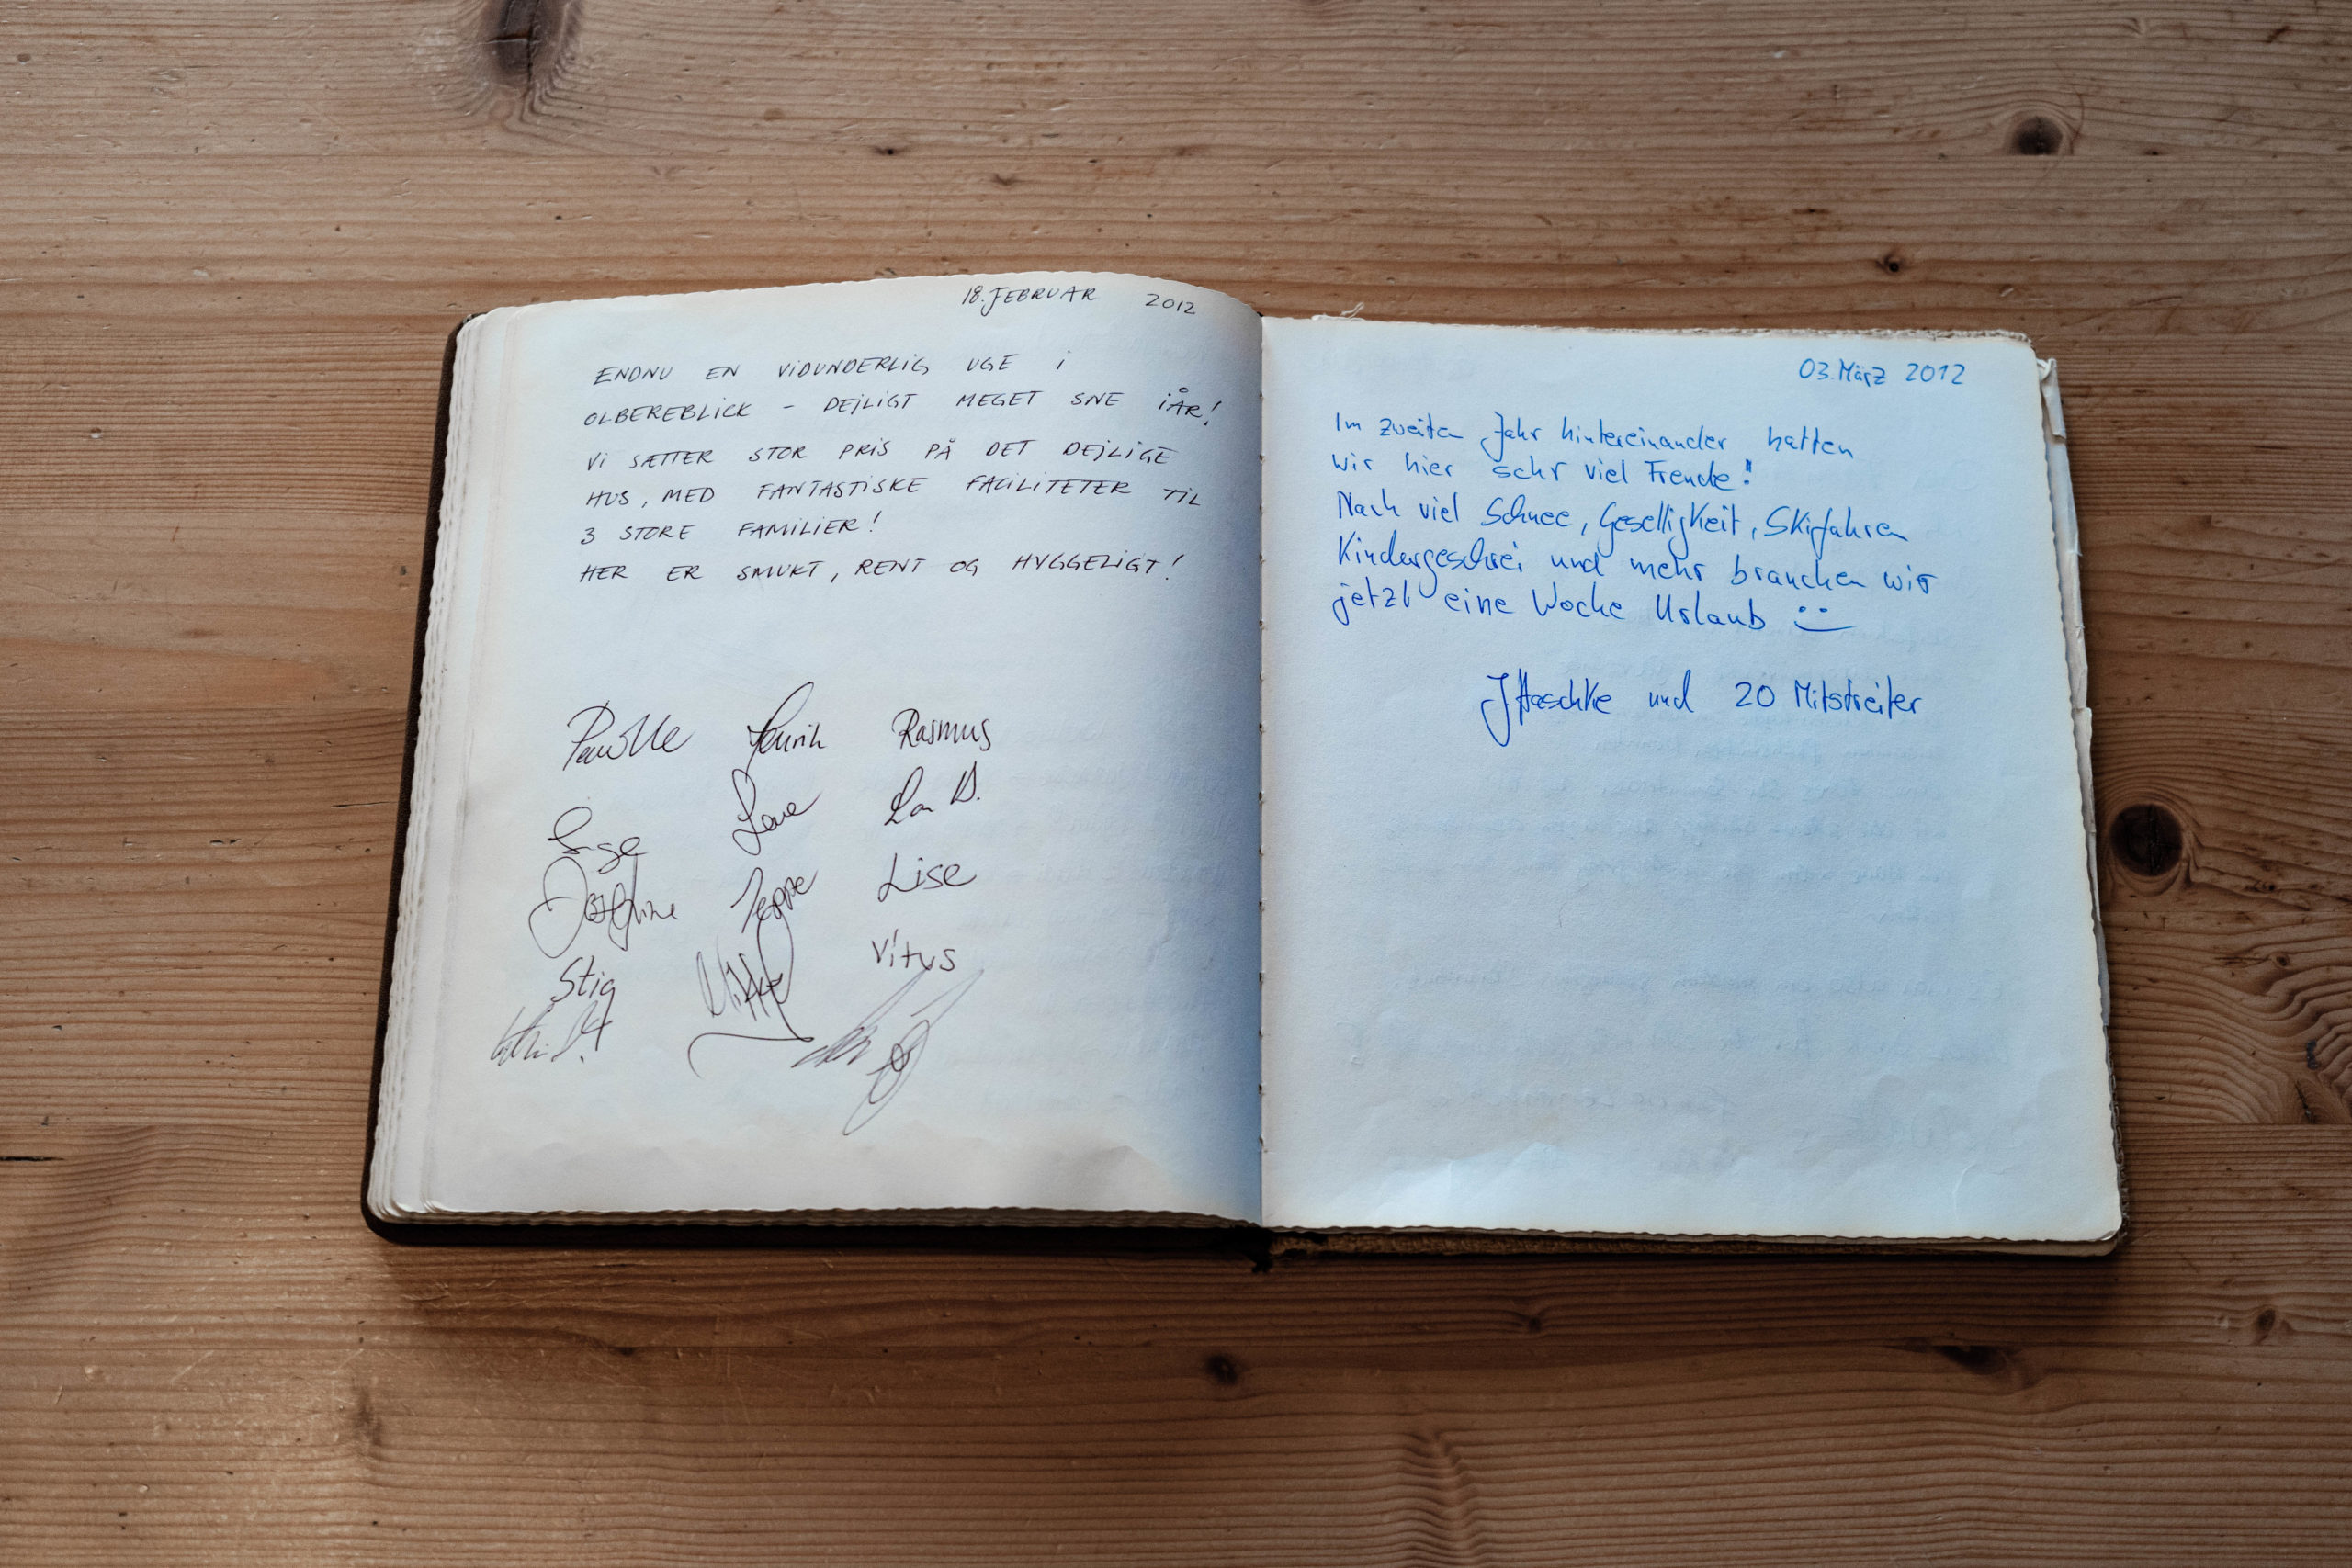 18. FEBRUAR 2012
ENDNU EN VIDUNDERLIG UGE I
OLBEREBLICK - DEJLIGT MEGET SNE IÅR!
VI SÆTTER STOR PRIS PÅ DET DEJLIGE
HUS, MED FANTASTISKE FACILITETER TIL
3 STORE FAMILIER!
HER ER SMUKT, RENT OG HYGGELIGT!
Pernille Henrik Rasmus
Lone
Josephine Jeppe Lise
Stig Mikkel Vitus
03. März 2012
Im zweiten Jahr hintereinander hatten
wir hier sehr viel Freude!
Nach viel Schnee, Geselligkeit, Skifahren
Kindergeschrei und mehr brauchen wir
jetzt eine Woche Urlaub
und 20 Mitstreiter